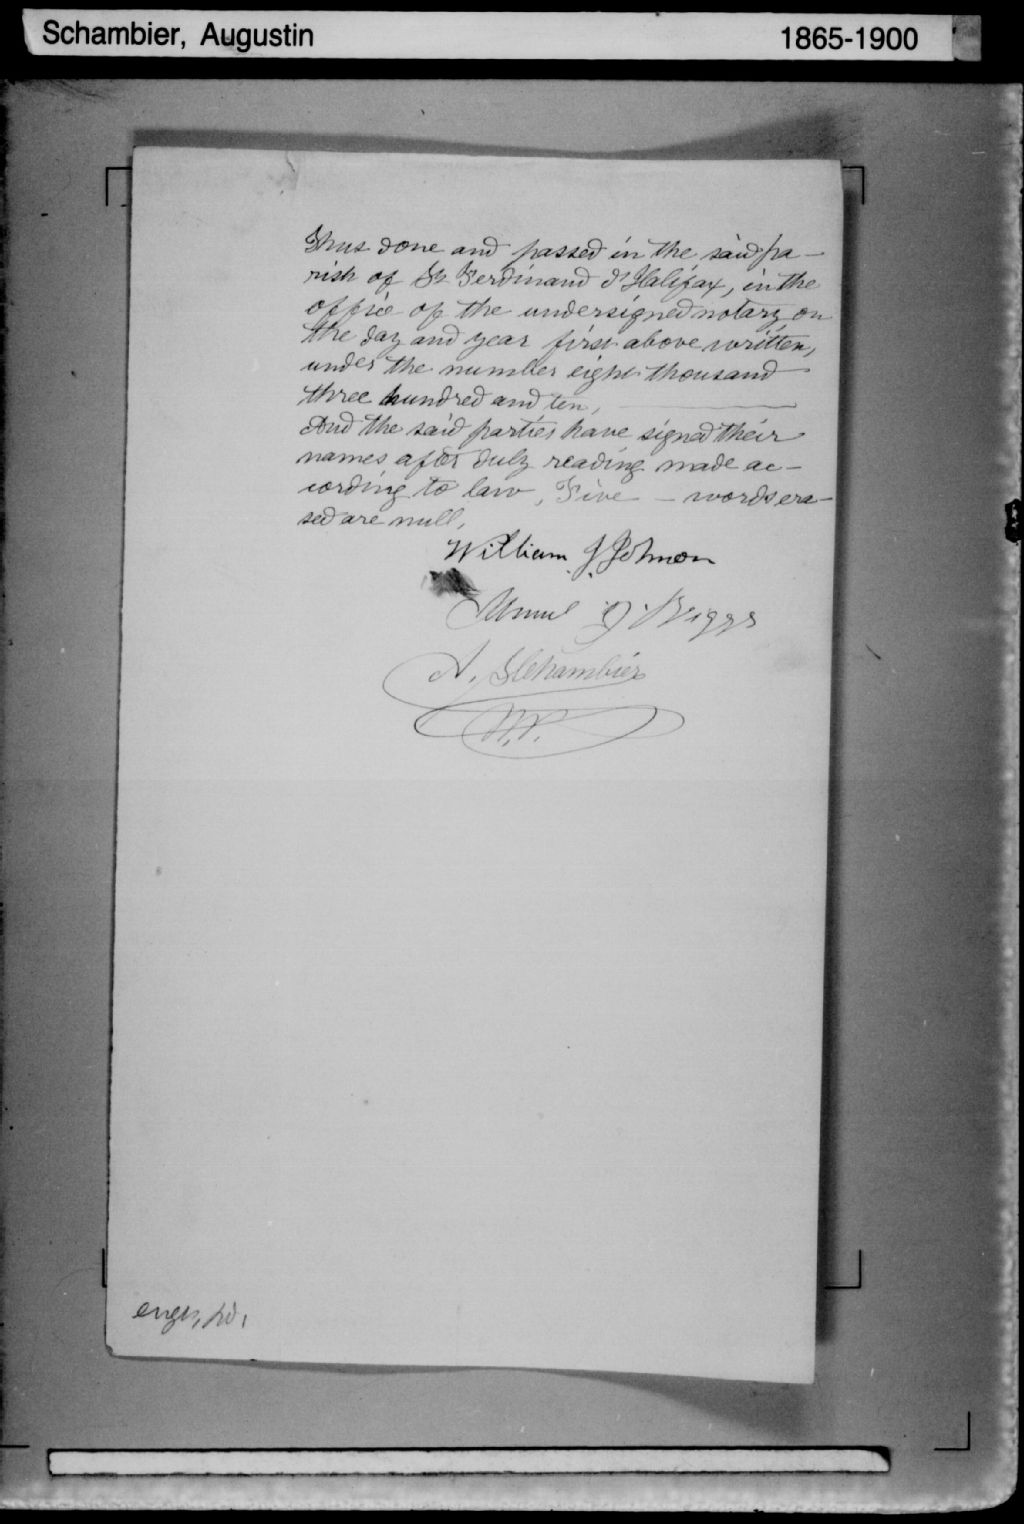 Schambier, Augustin 1865-1900
Thus done and passed in the said pa-
rish of St Ferdinand d'Halifax, in the
office of the undersigned notary on
the day and year first above written,
under the number eight thousand
three hundred and ten,
And the said parties have signed their
names after duly reading made ac-
cording to law, Five - words era-
sed are null,
William J. Johnson
J. Briggs
A. Schambier
N.P.